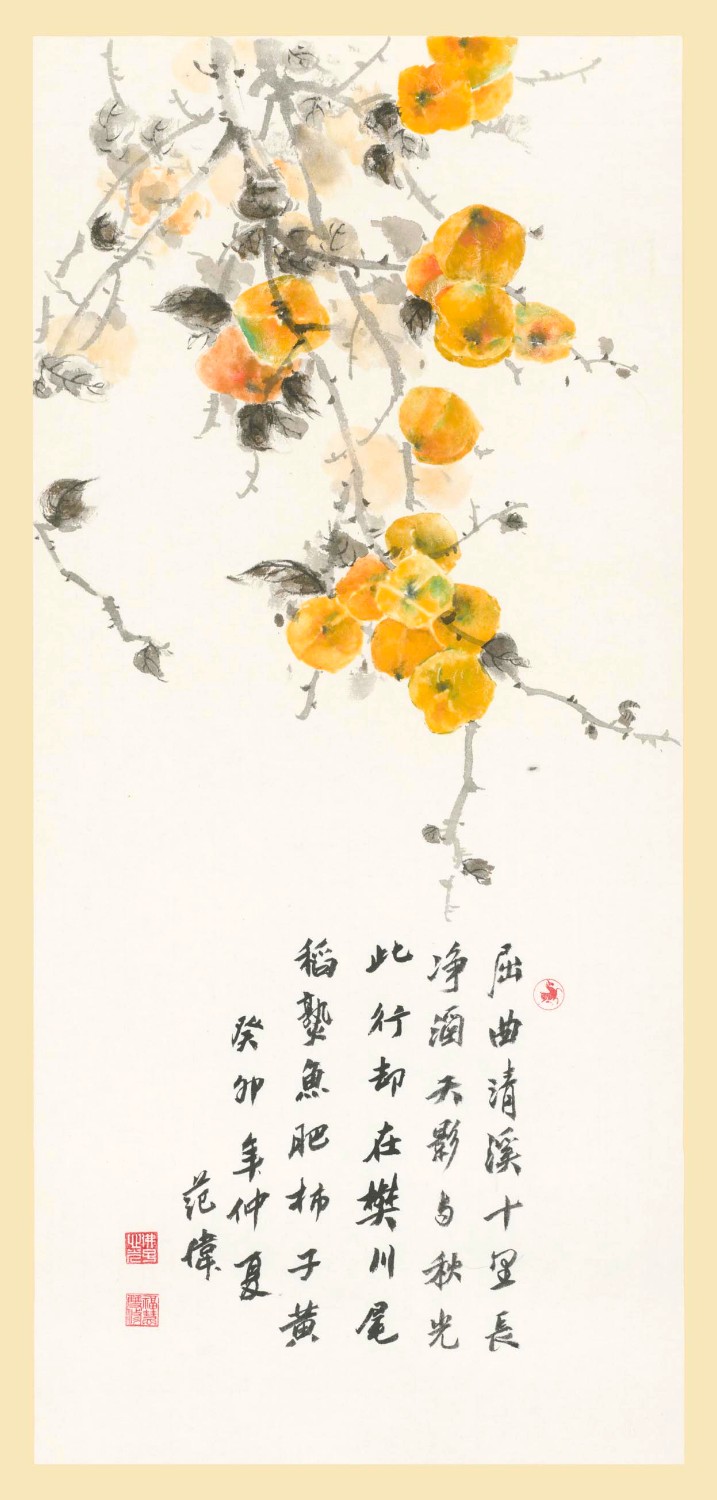 屈曲清溪十里長
净涵天影与秋光
此行却在樊川尾
稻熟魚肥柿子黄
癸卯年仲夏
范偉